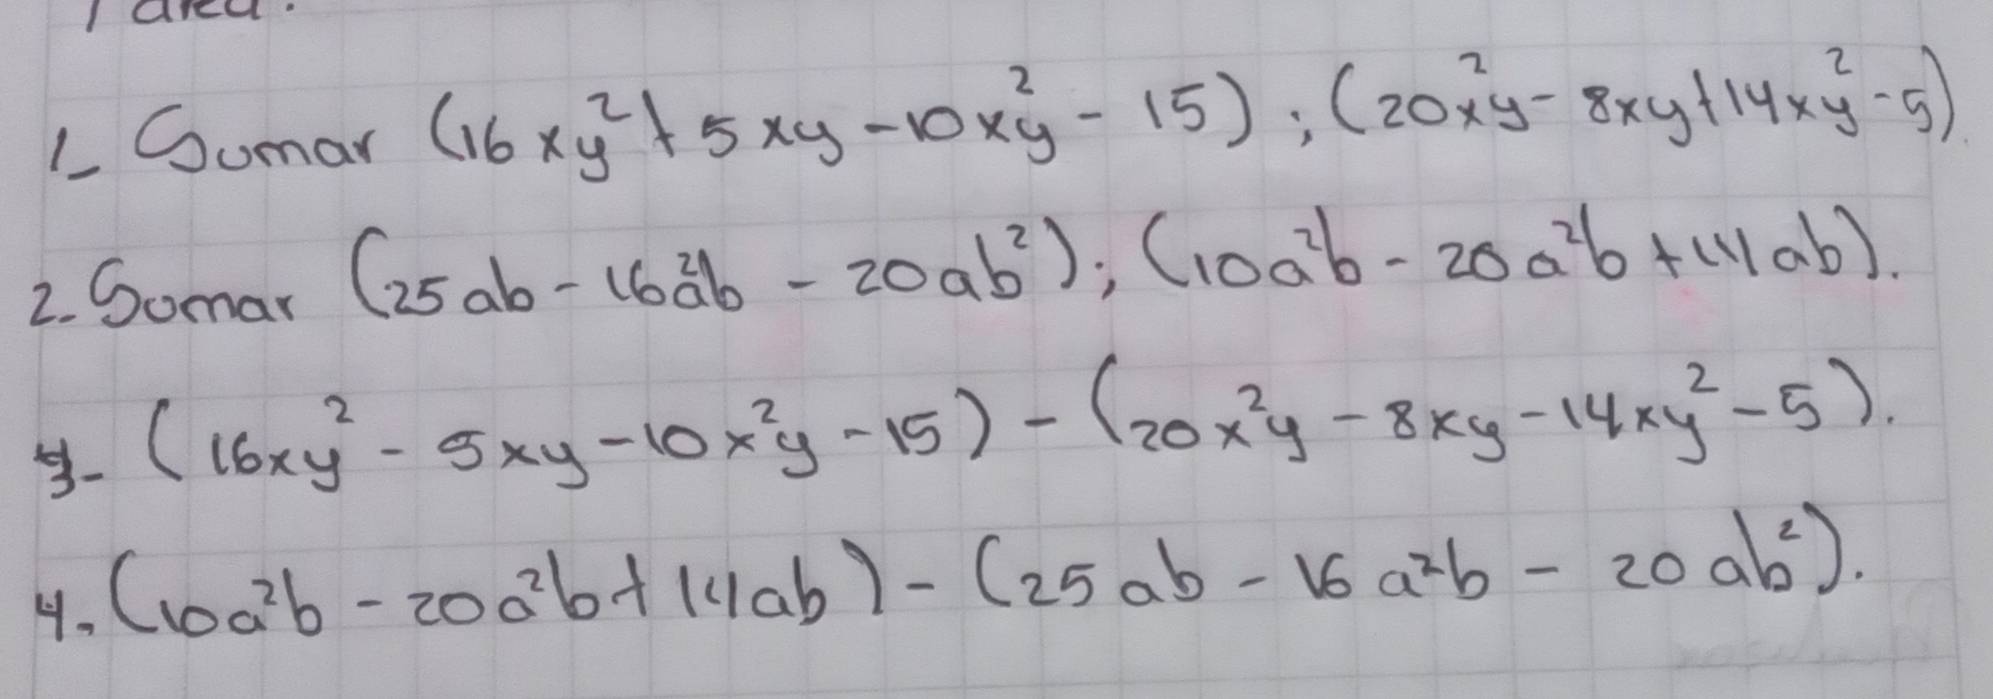 Tarea.
1_ Sumar (16xy² + 5xy - 10x²y - 15) ; (20x²y - 8xy + 14xy² - 5).
2. Sumar (25ab - 16a²b - 20ab²) ; (10a²b - 20a²b + 14ab).
3- (16xy² - 5xy - 10x²y - 15) - (20x²y - 8xy - 14xy² - 5).
4. (10a²b - 20a²b + 14ab) - (25ab - 16a²b - 20ab²).